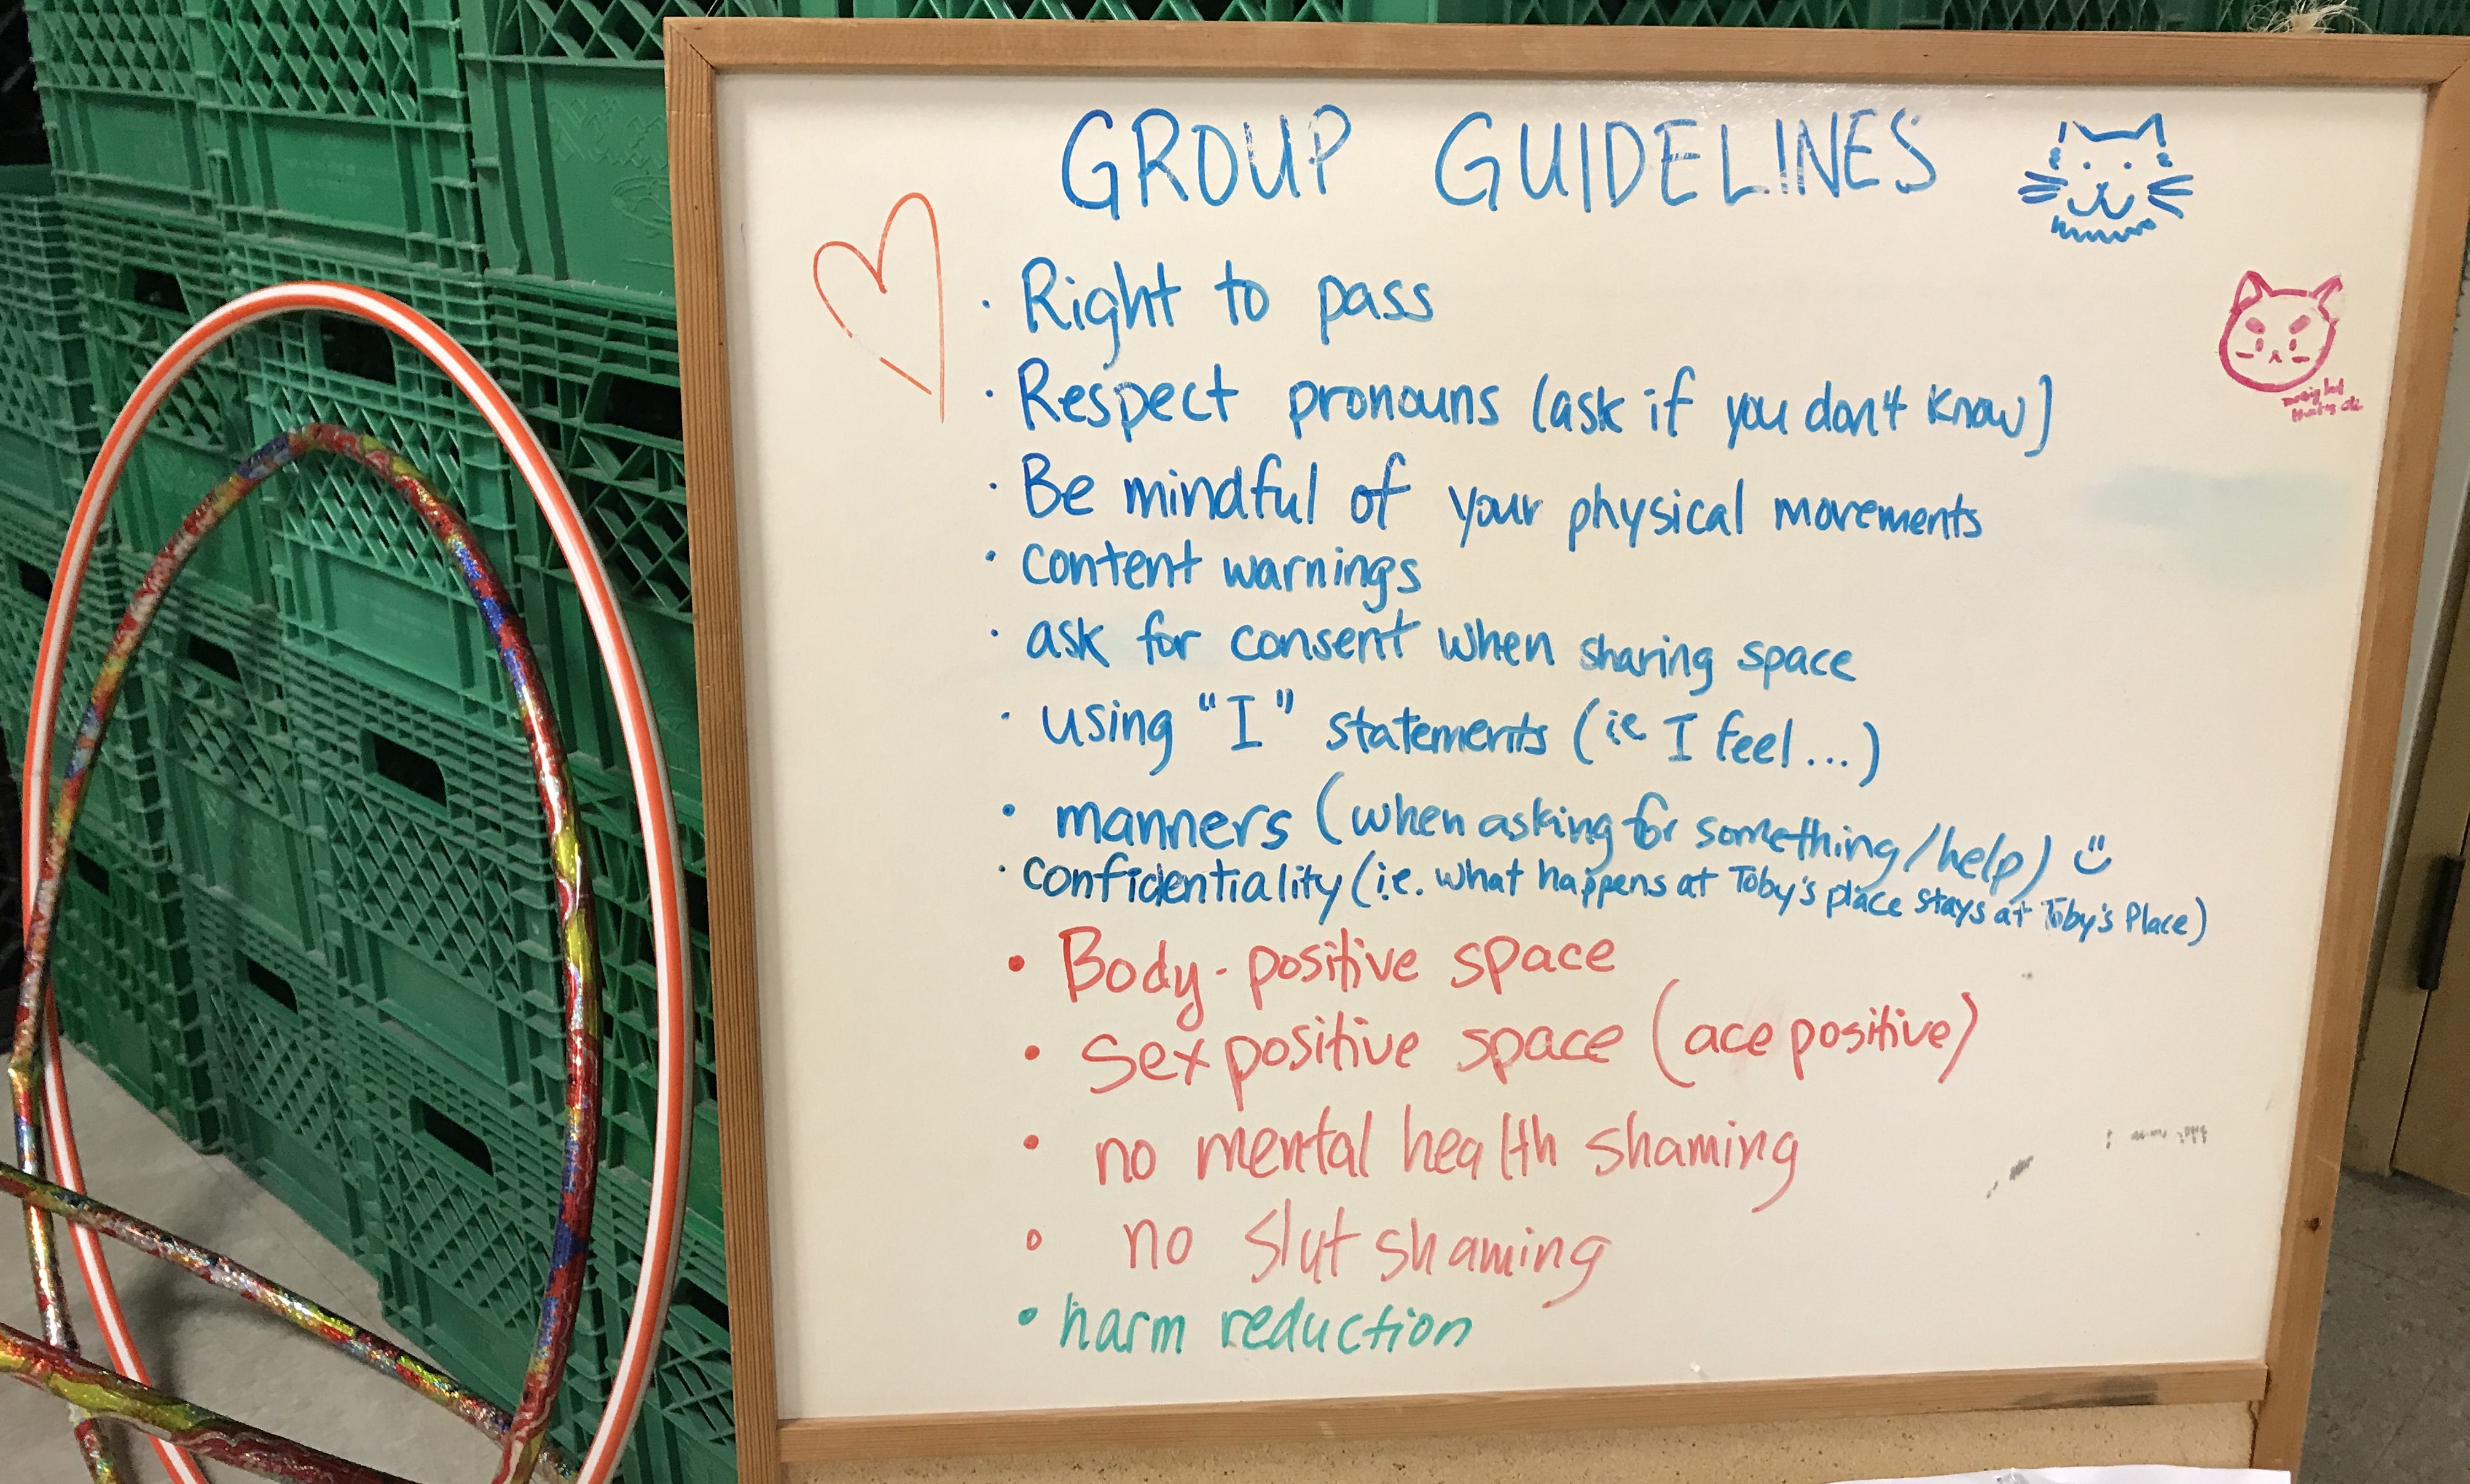 GROUP GUIDELINES
· Right to pass
· Respect pronouns (ask if you don't know)
· Be mindful of your physical movements
· content warnings
· ask for consent when sharing space
· using "I" statements (ie I feel...)
· manners (when asking for something/help) :)
· confidentiality (i.e. what happens at Toby's place stays at Toby's Place)
• Body-positive space
• sex positive space (ace positive)
• no mental health shaming
• no slut shaming
• harm reduction